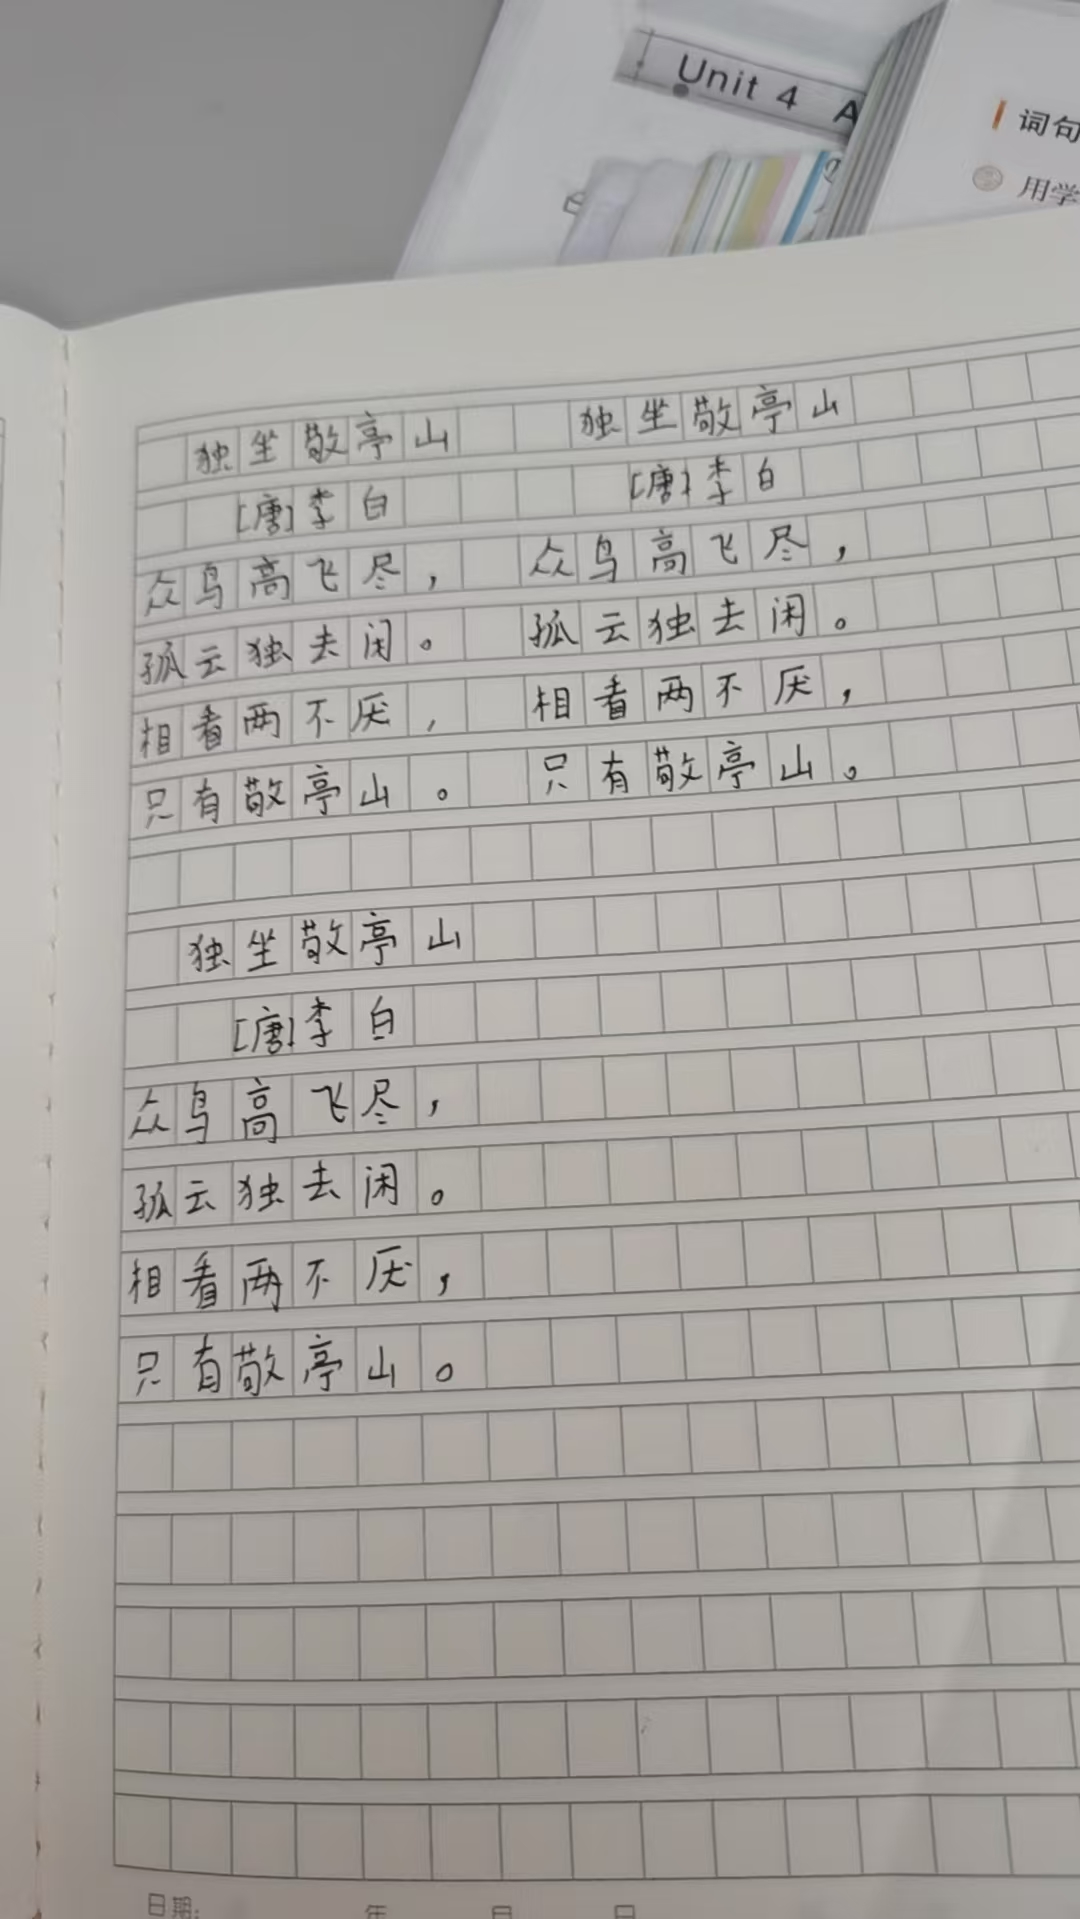 Unit 4 A
词句
用学
独坐敬亭山 独坐敬亭山
[唐]李白 [唐]李白
众鸟高飞尽， 众鸟高飞尽，
孤云独去闲。 孤云独去闲。
相看两不厌， 相看两不厌，
只有敬亭山。 只有敬亭山。
独坐敬亭山
[唐]李白
众鸟高飞尽，
孤云独去闲。
相看两不厌，
只有敬亭山。
日期: 年 月 日